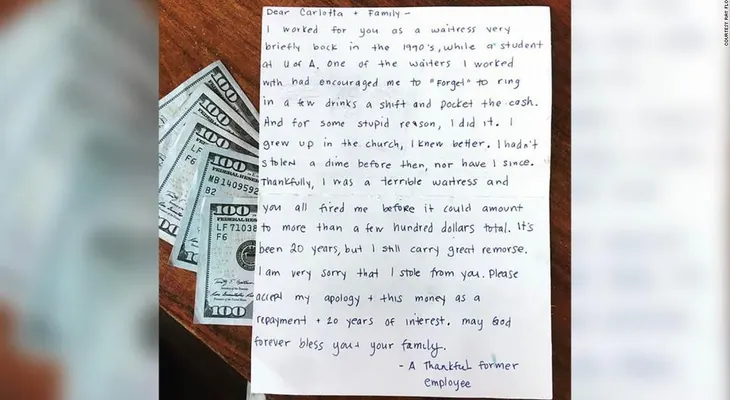 Dear Carlotta + Family -
I worked for you as a waitress very
briefly back in the 1990's, while a student
at U of A. One of the waiters I worked
with had encouraged me to "Forget" to ring
in a few drinks a shift and pocket the cash.
And for some stupid reason, I did it. I
grew up in the church, I knew better. I hadn't
stolen a dime before then, nor have I since.
Thankfully, I was a terrible waitress and
you all fired me before it could amount
to more than a few hundred dollars total. It's
been 20 years, but I still carry great remorse.
I am very sorry that I stole from you. Please
accept my apology + this money as a
repayment + 20 years of interest. may God
forever bless you + your family.
- A Thankful former
employee
100
100
100
LF
F6
100
MB 1409592
B2
100
FEDERAL RES
LF 71038
F6
100
COURTESY RAY FLO